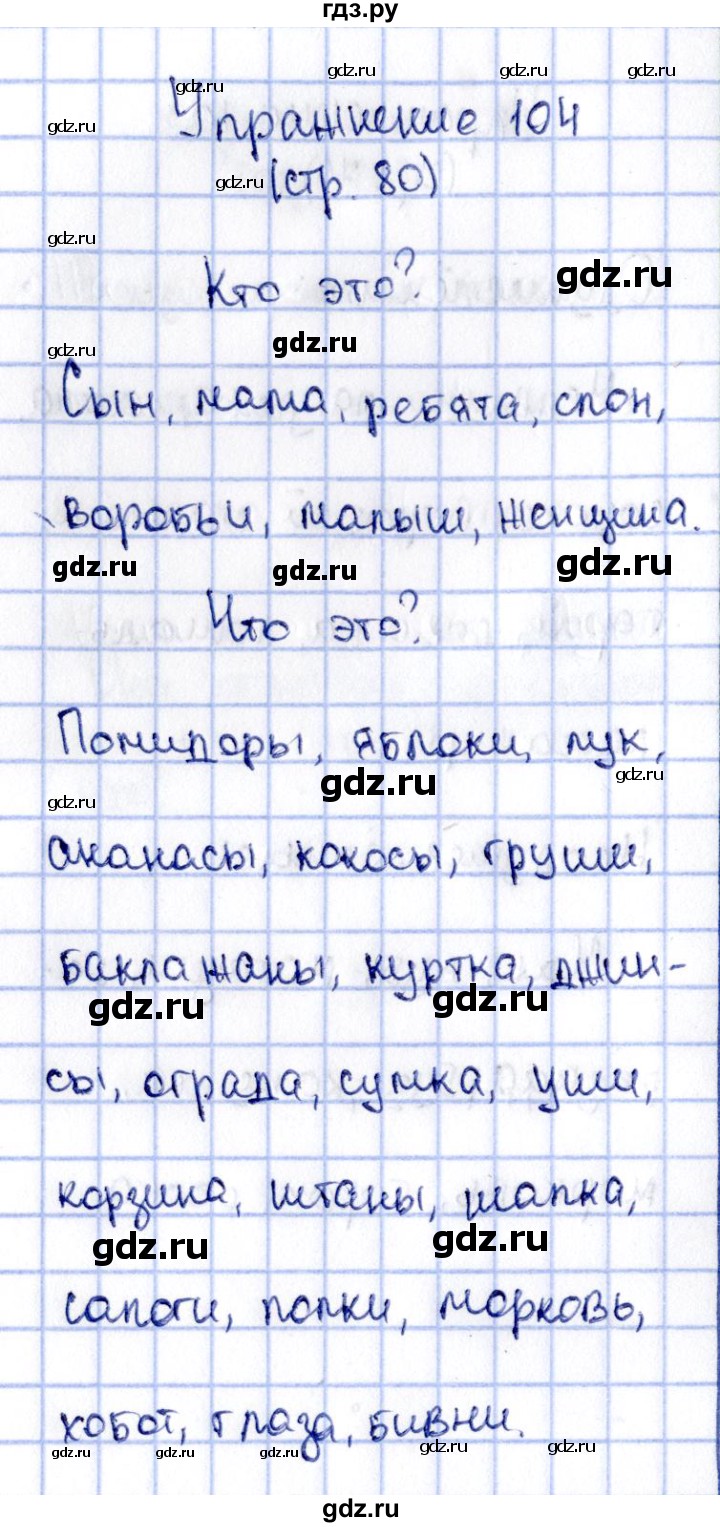 гдз.ру
gdz.ru gdz.ru gdz.ru
gdz.ru
gdz.ru
Упражнение 104
gdz.ru
(стр. 80)
gdz.ru
Кто это?
gdz.ru
gdz.ru
gdz.ru
Сын, мама, ребята, слон,
воробьи, малыш, женщина.
gdz.ru gdz.ru gdz.ru
Что это?
Помидоры, яблоки, лук,
gdz.ru gdz.ru
gdz.ru
ананасы, кокосы, груши,
баклажаны, куртка, джин-
gdz.ru gdz.ru
сы, ограда, сумка, уши,
корзина, штаны, шапка,
gdz.ru gdz.ru
сапоги, полки, морковь,
хобот, глаза, бивни.
gdz.ru gdz.ru gdz.ru gdz.ru gdz.ru
gdz.ru